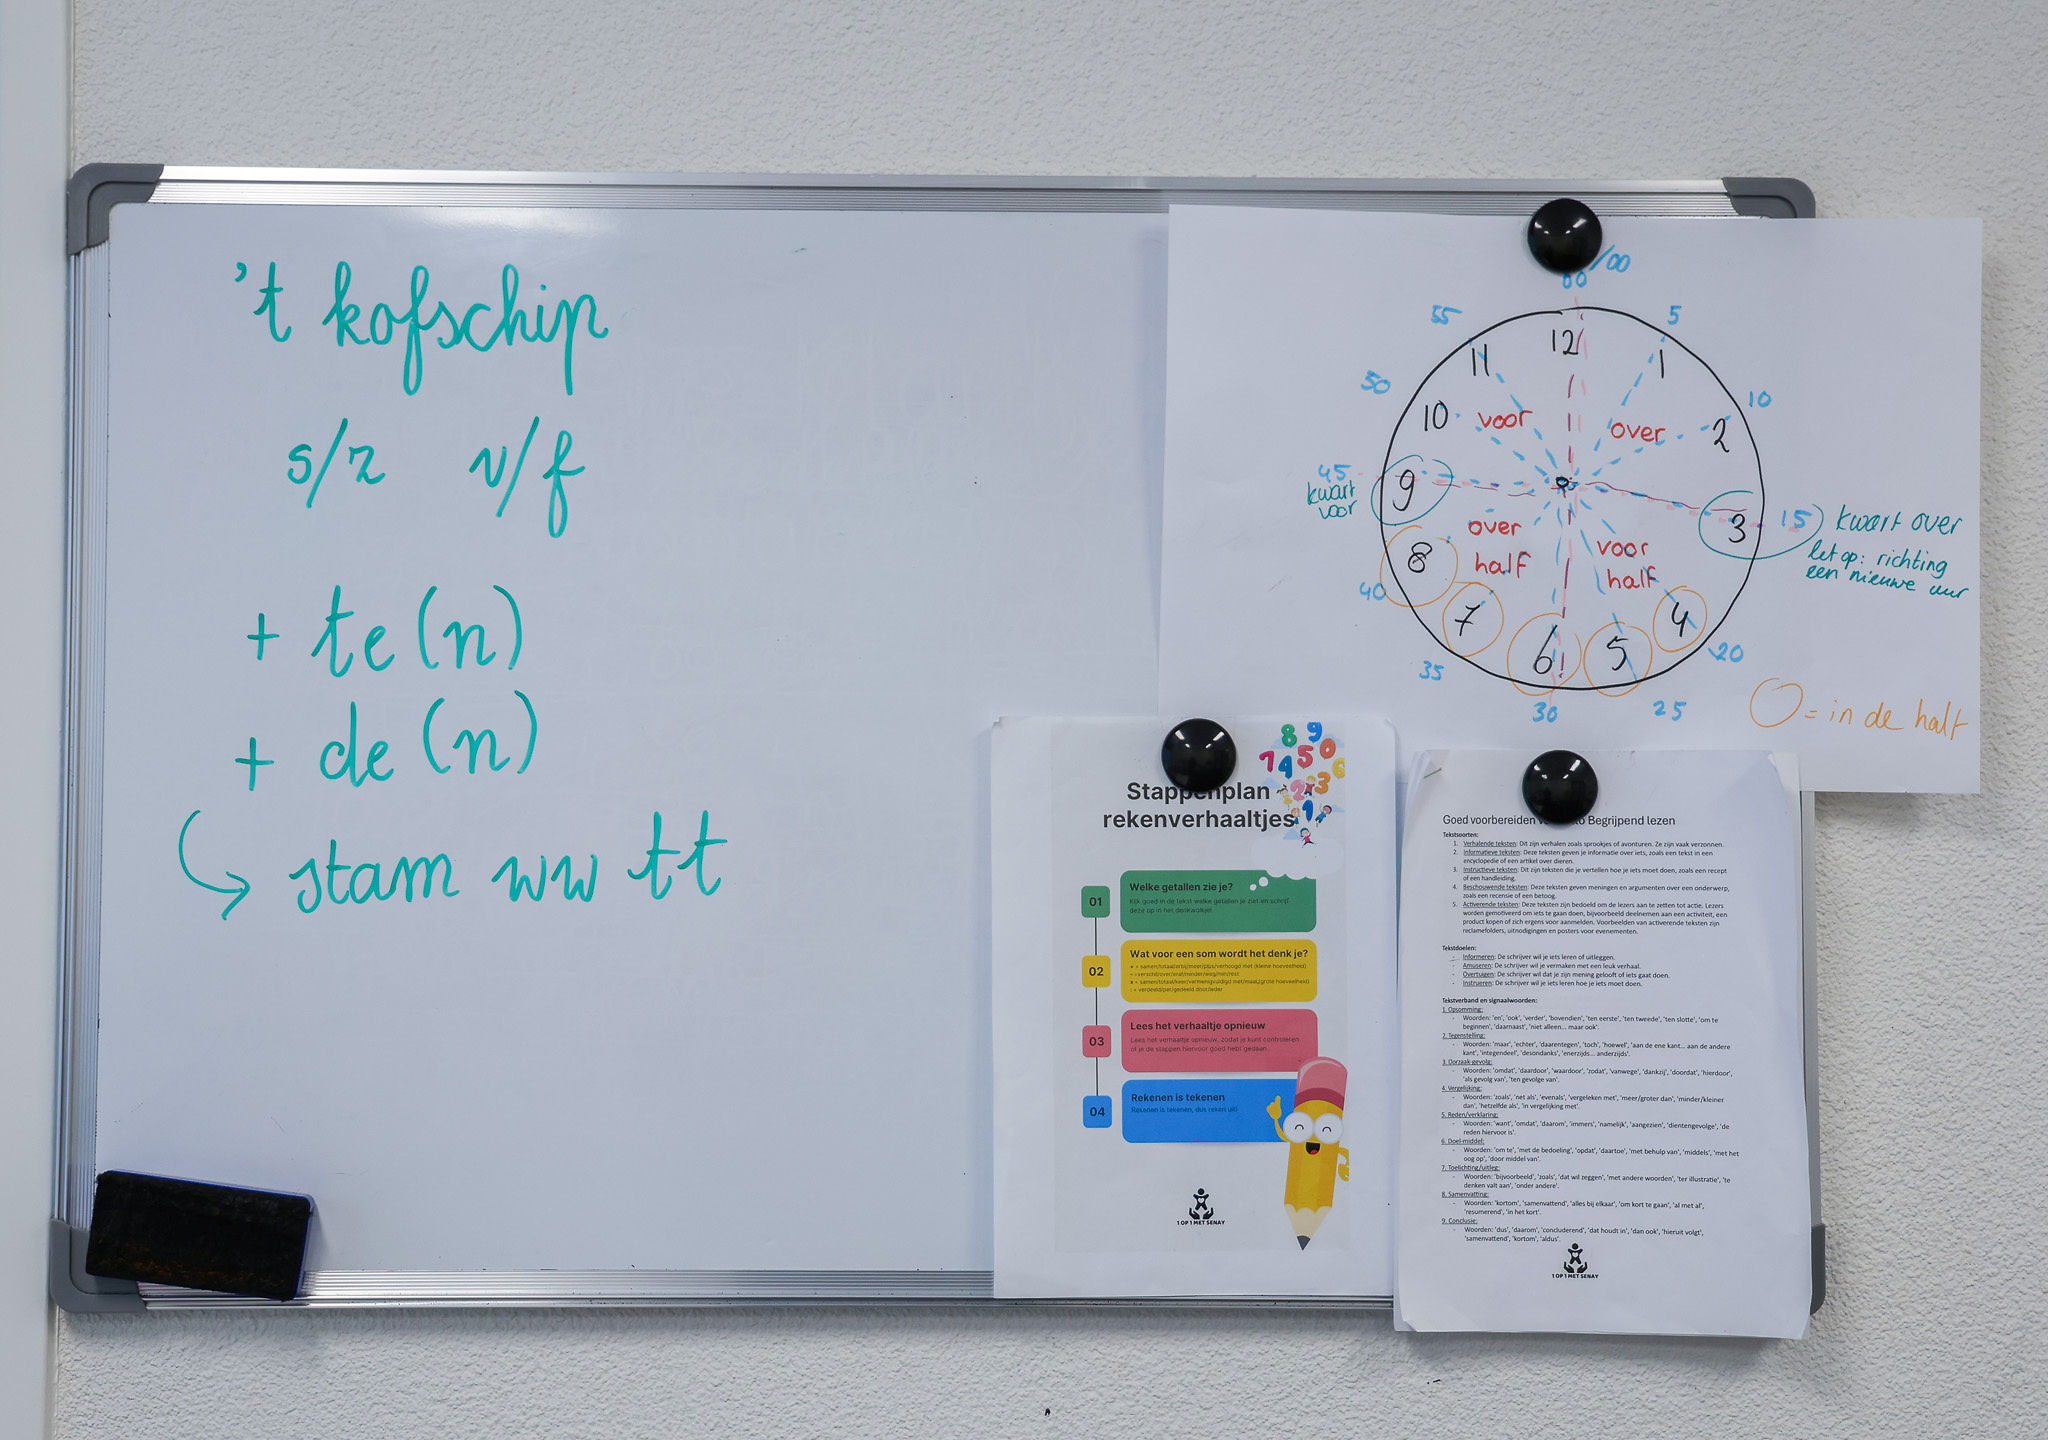 't kofschip
s/z v/f
+ te (n)
+ de (n)
stam ww tt
60/00
55
5
50
10
45
kwart
voor
15
kwart over
let op: richting
een nieuwe uur
40
20
35
25
30
12
11
1
10
2
9
3
8
4
7
5
6
voor
over
over
half
voor
half
O = in de half
8 9
7 4 5 0
6
2 x 3
1
Stappenplan
rekenverhaaltjes
01
Welke getallen zie je?
Kijk goed in de tekst welke getallen je ziet en schrijf
deze op in het denkwolkje!
02
Wat voor een som wordt het denk je?
+ = samen/totaal/erbij/meer/plus/verhoogd met (kleine hoeveelheid)
- = verschil/over/eraf/minder/weg/min/rest
x = samen/totaal/keer/vermenigvuldigd met/maal/grote hoeveelheid)
: = verdeeld/per/gedeeld door/ieder
03
Lees het verhaaltje opnieuw
Lees het verhaaltje opnieuw, zodat je kunt controleren
of je de stappen hiervoor goed hebt gedaan.
04
Rekenen is tekenen
Rekenen is tekenen, dus reken uit!
1 OP 1 MET SENAY
Goed voorbereiden Begrijpend lezen
Tekstsoorten:
1. Verhalende teksten: Dit zijn verhalen zoals sprookjes of avonturen. Ze zijn vaak verzonnen.
2. Informatieve teksten: Deze teksten geven je informatie over iets, zoals een tekst in een
encyclopedie of een artikel over dieren.
3. Instructieve teksten: Dit zijn teksten die je vertellen hoe je iets moet doen, zoals een recept
of een handleiding.
4. Beschouwende teksten: Deze teksten geven meningen en argumenten over een onderwerp,
zoals een recensie of een betoog.
5. Activerende teksten: Deze teksten zijn bedoeld om de lezers aan te zetten tot actie. Lezers
worden gemotiveerd om iets te gaan doen, bijvoorbeeld deelnemen aan een activiteit, een
product kopen of zich ergens voor aanmelden. Voorbeelden van activerende teksten zijn
reclamefolders, uitnodigingen en posters voor evenementen.
Tekstdoelen:
- Informeren: De schrijver wil je iets leren of uitleggen.
- Amuseren: De schrijver wil je vermaken met een leuk verhaal.
- Overtuigen: De schrijver wil dat je zijn mening gelooft of iets gaat doen.
- Instrueren: De schrijver wil je iets leren hoe je iets moet doen.
Tekstverband en signaalwoorden:
1. Opsomming:
- Woorden: 'en', 'ook', 'verder', 'bovendien', 'ten eerste', 'ten tweede', 'ten slotte', 'om te
beginnen', 'daarnaast', 'niet alleen... maar ook'.
2. Tegenstelling:
- Woorden: 'maar', 'echter', 'daarentegen', 'toch', 'hoewel', 'aan de ene kant... aan de andere
kant', 'integendeel', 'desondanks', 'enerzijds... anderzijds'.
3. Oorzaak-gevolg:
- Woorden: 'omdat', 'daardoor', 'waardoor', 'zodat', 'vanwege', 'dankzij', 'doordat', 'hierdoor',
'als gevolg van', 'ten gevolge van'.
4. Vergelijking:
- Woorden: 'zoals', 'net als', 'evenals', 'vergeleken met', 'meer/groter dan', 'minder/kleiner
dan', 'hetzelfde als', 'in vergelijking met'.
5. Reden/verklaring:
- Woorden: 'want', 'omdat', 'daarom', 'immers', 'namelijk', 'aangezien', 'dientengevolge', 'de
reden hiervoor is'.
6. Doel-middel:
- Woorden: 'om te', 'met de bedoeling', 'opdat', 'daartoe', 'met behulp van', 'middels', 'met het
oog op', 'door middel van'.
7. Toelichting/uitleg:
- Woorden: 'bijvoorbeeld', 'zoals', 'dat wil zeggen', 'met andere woorden', 'ter illustratie', 'te
denken valt aan', 'onder andere'.
8. Samenvatting:
- Woorden: 'kortom', 'samenvattend', 'alles bij elkaar', 'om kort te gaan', 'al met al',
'resumerend', 'in het kort'.
9. Conclusie:
- Woorden: 'dus', 'daarom', 'concluderend', 'dat houdt in', 'dan ook', 'hieruit volgt',
'samenvattend', 'kortom', 'aldus'.
1 OP 1 MET SENAY